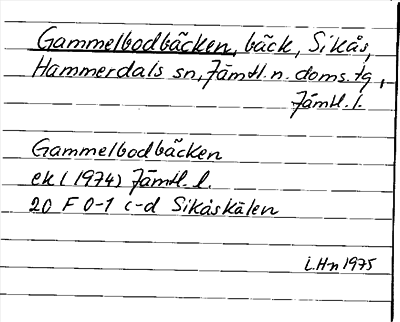 Gammelbodbäcken, bäck, Sikås,
Hammerdals sn, Jämtl. n. doms.tg,
Jämtl. l.
Gammelbodbäcken
ek (1974) Jämtl. l.
20 F 0-1 c-d Sikåskälen
i. Hn 1975